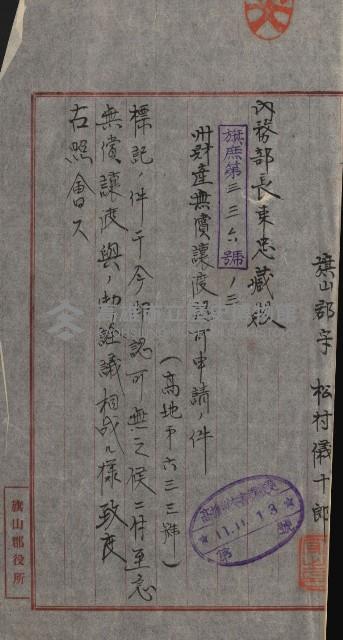 旗山郡守 松村儀十郎
内務部長 東忠藏殿
旗庶第三三六號ノ三
州財産無償讓渡認可申請ノ件
(高地第六三三號)
標記ノ件于今御認可無之候ニ付至急
無償讓渡與ノ御詮議相成ル樣致度
右照會ス
11.11.13
旗山郡役所